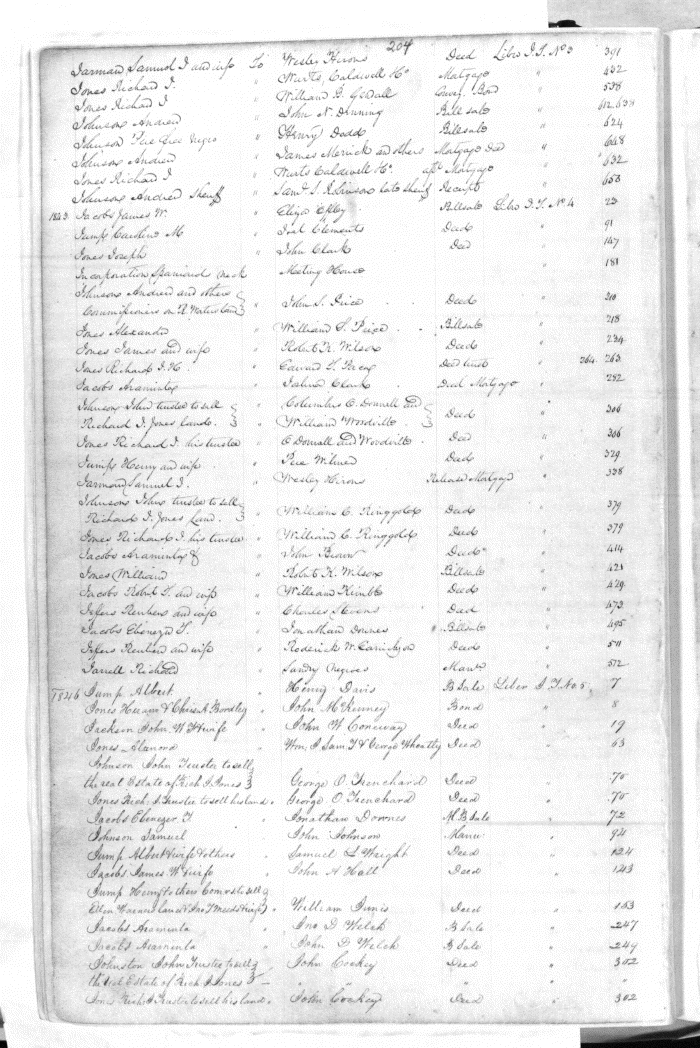 204
Jarman Samuel J and wife To Wesley Hirons Deed Liber J.T. No 3 391
Jones Richard J. " Wurts Caldwell & Co Mortgage " 432
Jones Richard J " William B. Convey. Bond " 538
Johnson Andrew " John N. Dinning Bill sale " 612,638
Johnson Free negro " Henry Dodd Bill sale " 624
Johnson Andrew " James Merrick and others Mortgage Deed " 628
Jones Richard J " Wurts Caldwell & Co. Mortgage " 632
Johnson Andrew Sheriff " Saml. S. Robinson late Sheriff Receipt " 653
1843 Jacobs James W. " Eliza Bill sale Liber J.T. No 4 23
Jump Caroline M " Clements Deed " 91
Jones Joseph " John Clark Deed " 147
Incorporation Spaniard neck Meeting House 181
Johnson Andrew and others
Commissioners on R Waters land " John S. Price Deed " 210
Jones Alexander " William S. Price Bill sale " 218
Jones James and wife " Robert K. Wilson Deed " 234
Jones Richard J. " Edward Deed trust " 264. 263
Jacobs Araminta " Joshua Clark Deed Mortgage " 282
Johnson John trustee to sell " Columbus O Donnell and
Richard J. Jones Lands. " William Woodville Deed " 306
Jones Richard J. his trustee " O Donnell and Woodville Deed " 306
Jump Henry and wife " Pere Wilmer Deed " 329
Jarman Samuel J. " Wesley Hirons Release Mortgage " 338
Johnson John trustee to sell
Richard J. Jones Land. " William C. Ringgold Deed " 379
Jones Richard J. his trustee " William C. Ringgold Deed " 379
Jacobs Araminta " John Brown Deed " 414
Jones William " Robert K. Wilson Bill sale " 421
Jacobs Robert T. and wife " William Kimble Deed " 429
Jefers Reuben and wife " Charles Stevens Deed " 473
Jacobs Ebenezer T. " Jonathan Downes Bill sale " 495
Jefers Reuben and wife " Roderick W. Deed " 511
Jarrell Richard " Sandry Negroes Manu " 512
1846 Jump Albert " Henry Davis B Sale Liber J.T. No. 5. 7
Jones Hiram & Chris A Bordley " John McKenney Bond " 8
Jackson John W & wife " John W Coneway Deed " 19
Jones " Wm, J Sam T & George Wheatly Deed " 63
Johnson John Trustee to sell
the real Estate of Rich J. Jones " George O Trenchard Deed " 70
Jones Rich. J Trustee to sell his land " George O Trenchard Deed " 70
Jacobs Ebenezer T " Jonathan Downes M. B Sale " 72
Johnson Samuel " John Johnson Manu " 94
Jump Albert & wife & others " Samuel L Wright Deed " 124
Jacobs James W & wife " John A Hall Deed " 143
Jump Henry & others Comrs to sell
Ellen Warners land & Jno T Meeds & wife " William Deed " 163
Jacobs Araminta " Jno D Welch B Sale " 247
Jacobs Araminta " John D Welch B Sale " 249
Johnston John Trustee to sell " John Cockey Deed " 302
the real Estate of Rich J Jones " " " " "
Jones Rich J Trustee to sell his land " John Cockey Deed " 302